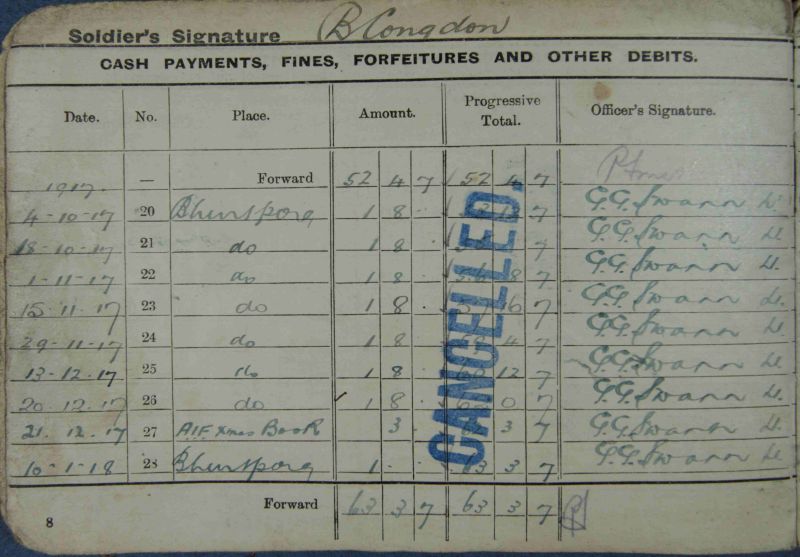 Soldier's Signature B Congdon
CASH PAYMENTS, FINES, FORFEITURES AND OTHER DEBITS.
Date. No. Place. Amount. Progressive Total. Officer's Signature.
— Forward 52 4 7 52 4 7
1917.
4-10-17 20 Bhurtpore 1 8 · 12 7 G.G. Swann Lt.
18-10-17 21 do 1 8 · 7 G.G. Swann Lt.
1-11-17 22 do 1 8 · 56 8 7 G.G. Swann Lt.
15.11.17 23 do 1 8 · 57 16 7 G.G. Swann Lt.
29-11-17 24 do 1 8 · 4 7 G.G. Swann Lt.
13-12-17 25 do 1 8 · 12 7 G.G. Swann Lt.
20.12.17 26 do 1 8 · 0 7 G.G. Swann Lt.
21.12.17 27 A.I.F. Xmas Book 3 · 3 7 G.G. Swann Lt.
10-1-18 28 Bhurtpore 1 · · 63 3 7 G.G. Swann Lt.
CANCELLED.
Forward 63 3 7 63 3 7
8